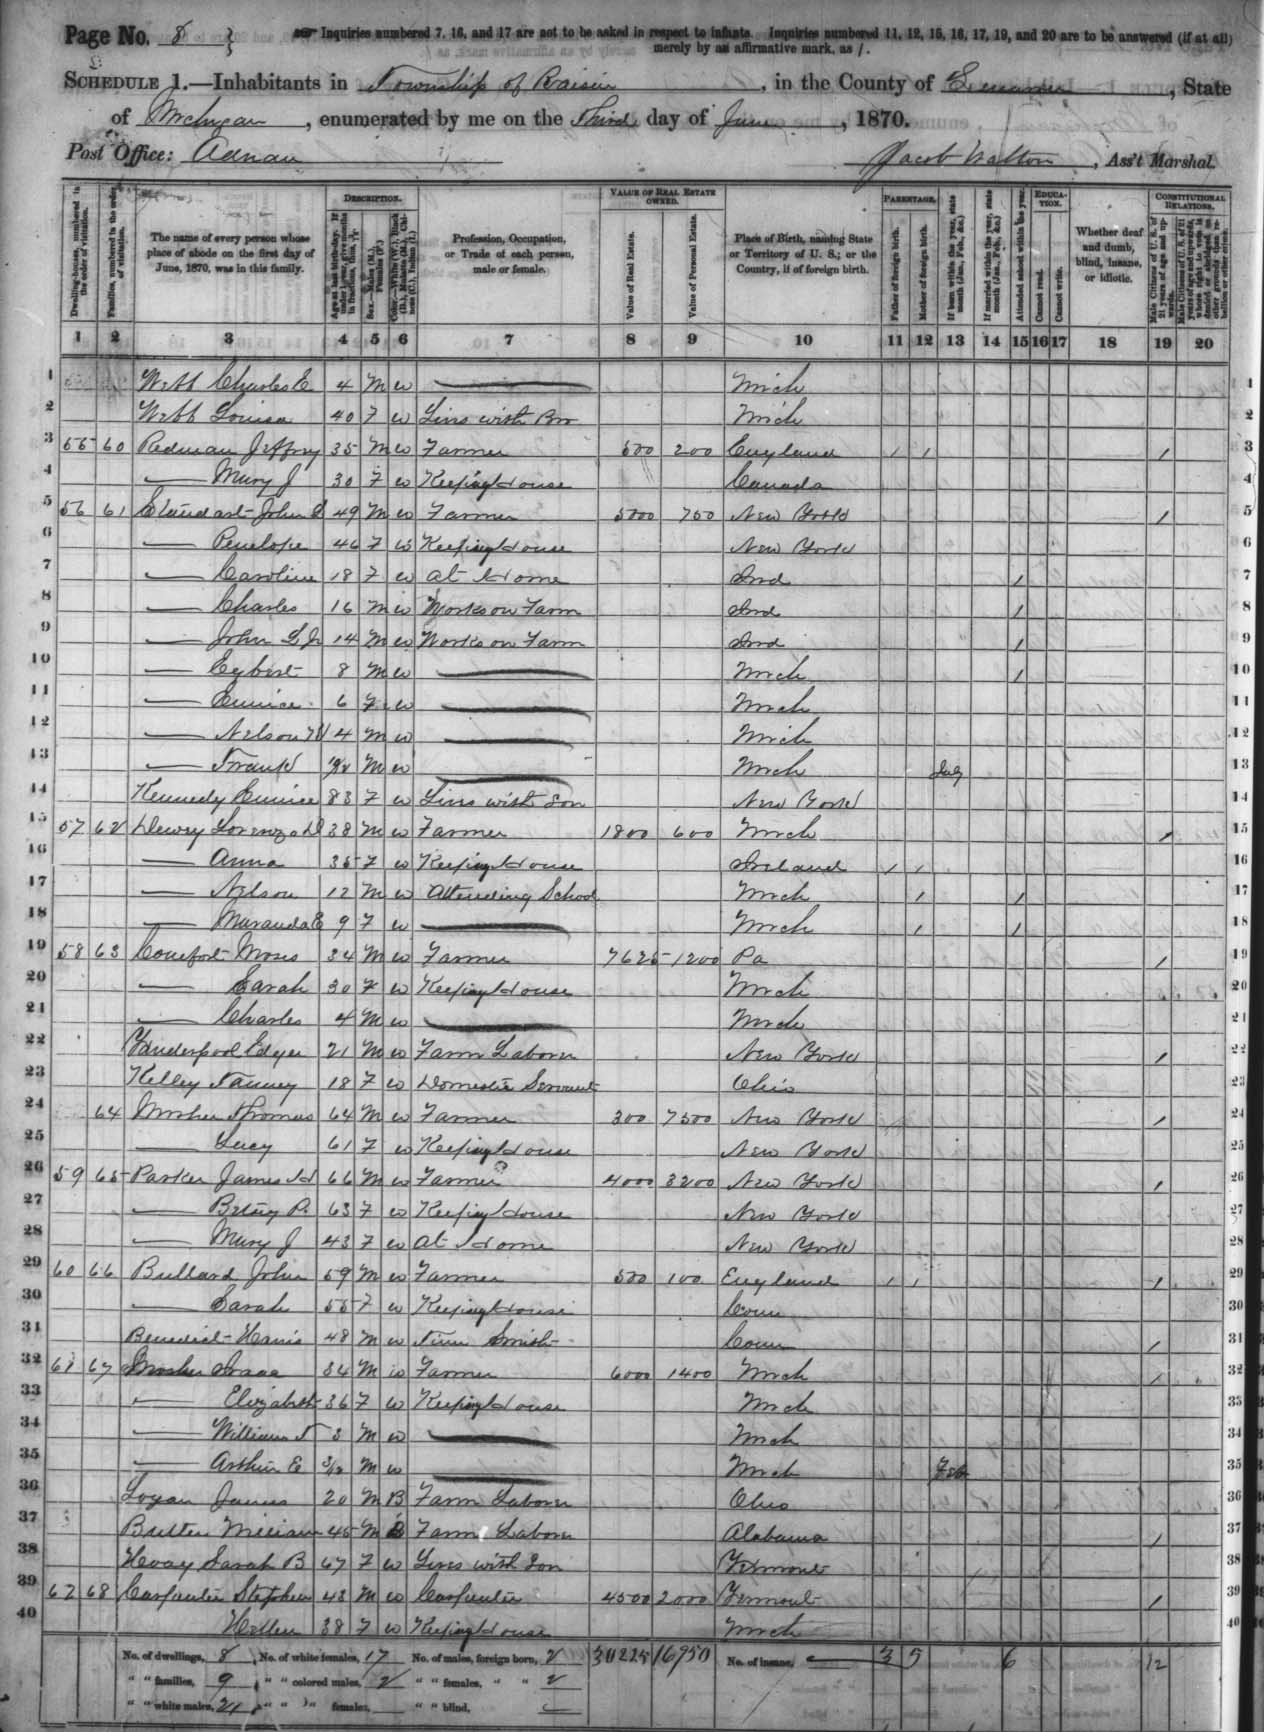 Page No. 8
Inquiries numbered 7, 16, and 17 are not to be asked in respect to infants. Inquiries numbered 11, 12, 15, 16, 17, 19, and 20 are to be answered (if at all)
merely by an affirmative mark, as /.
SCHEDULE 1.—Inhabitants in Township of Raisin, in the County of Lenawee, State
of Michigan, enumerated by me on the Third day of June, 1870.
Post Office: Adrian Jacob Walton, Ass't Marshal.
Dwelling-houses, numbered in the order of visitation.
Families, numbered in the order of visitation.
The name of every person whose place of abode on the first day of June, 1870, was in this family.
DESCRIPTION.
Age at last birth-day. If under 1 year, give months in fractions, thus, 3/12
Sex.—Males (M.), Females (F.)
Color.—White (W.), Black (B.), Mulatto (M.), Chinese (C.), Indian (I.)
Profession, Occupation, or Trade of each person, male or female.
VALUE OF REAL ESTATE OWNED.
Value of Real Estate.
Value of Personal Estate.
Place of Birth, naming State or Territory of U. S.; or the Country, if of foreign birth.
PARENTAGE.
Father of foreign birth.
Mother of foreign birth.
If born within the year, state month (Jan., Feb., &c.)
If married within the year, state month (Jan., Feb., &c.)
Attended school within the year.
EDUCATION.
Cannot read.
Cannot write.
Whether deaf and dumb, blind, insane, or idiotic.
CONSTITUTIONAL RELATIONS.
Male Citizens of U. S. of 21 years of age and upwards.
1 2 3 4 5 6 7 8 9 10 11 12 13 14 15 16 17 18 19 20
1 Webb Charles E 4 M W Mich 1
2 Webb Louisa 40 F W Lives with Bro Mich 2
3 55 60 Redman Jeffrey 35 M W Farmer 500 200 England / / / 3
4 — Mary J 30 F W Keeping House Canada 4
5 56 61 John S 49 M W Farmer 5000 750 New York / 5
6 — Penelope 46 F W Keeping House New York 6
7 — Caroline 18 F W At Home Ind / 7
8 — Charles 16 M W Works on Farm Ind / 8
9 — John S Jr 14 M W Works on Farm Ind / 9
10 — Egbert 8 M W Mich / 10
11 — Eunice 6 F W Mich 11
12 — Nelson W 4 M W Mich 12
13 — Frank M W Mich July 13
14 Kennedy Eunice 83 F W Lives with Son New York 14
15 57 62 Dewey Lorenzo D 38 M W Farmer 1800 600 Mich / 15
16 — Anna 35 F W Keeping House Ireland / / 16
17 — Nelson 12 M W Attending School Mich / / 17
18 — Maranda E 9 F W Mich / / 18
19 58 63 Comfort Moses 34 M W Farmer 7625 1200 Pa / 19
20 — Sarah 30 F W Keeping House Mich 20
21 — Charles 4 M W Mich 21
22 Vanderpool Edgar 21 M W Farm Laborer New York / 22
23 Kelley Fanney 18 F W Domestic Servant Ohio 23
24 64 Mosher Thomas 64 M W Farmer 300 7500 New York / 24
25 — Lucy 61 F W Keeping House New York 25
26 59 65 Parker James H 66 M W Farmer 4000 3200 New York / 26
27 — Betsey P. 63 F W Keeping House New York 27
28 — Mary J 43 F W At Home New York 28
29 60 66 Bullard John 59 M W Farmer 500 100 England / / / 29
30 — Sarah 55 F W Keeping House Conn 30
31 Benedict 48 M W Smith Conn / 31
32 61 67 Mosher Isaac 34 M W Farmer 6000 1400 Mich / 32
33 — Elizabeth 36 F W Keeping House Mich 33
34 — William T 3 M W Mich 34
35 — Arthur E 3/12 M W Mich Feb 35
36 Logan James 20 M B Farm Laborer Ohio 36
37 William 45 M B Farm Laborer Alabama / 37
38 Hoag Sarah B 67 F W Lives with Son Vermont 38
39 62 68 Carpenter Stephen 43 M W Carpenter 4500 2000 Vermont / 39
40 Hellen 38 F W Keeping House Mich 40
No. of dwellings, 8 No. of white females, 17 No. of males, foreign born, 2 30225 16950 No. of insane, 3 5 6 12
" " families, 9 " " colored males, 2 " " females, " " 2
" " white males, 21 " " " females, " " blind,